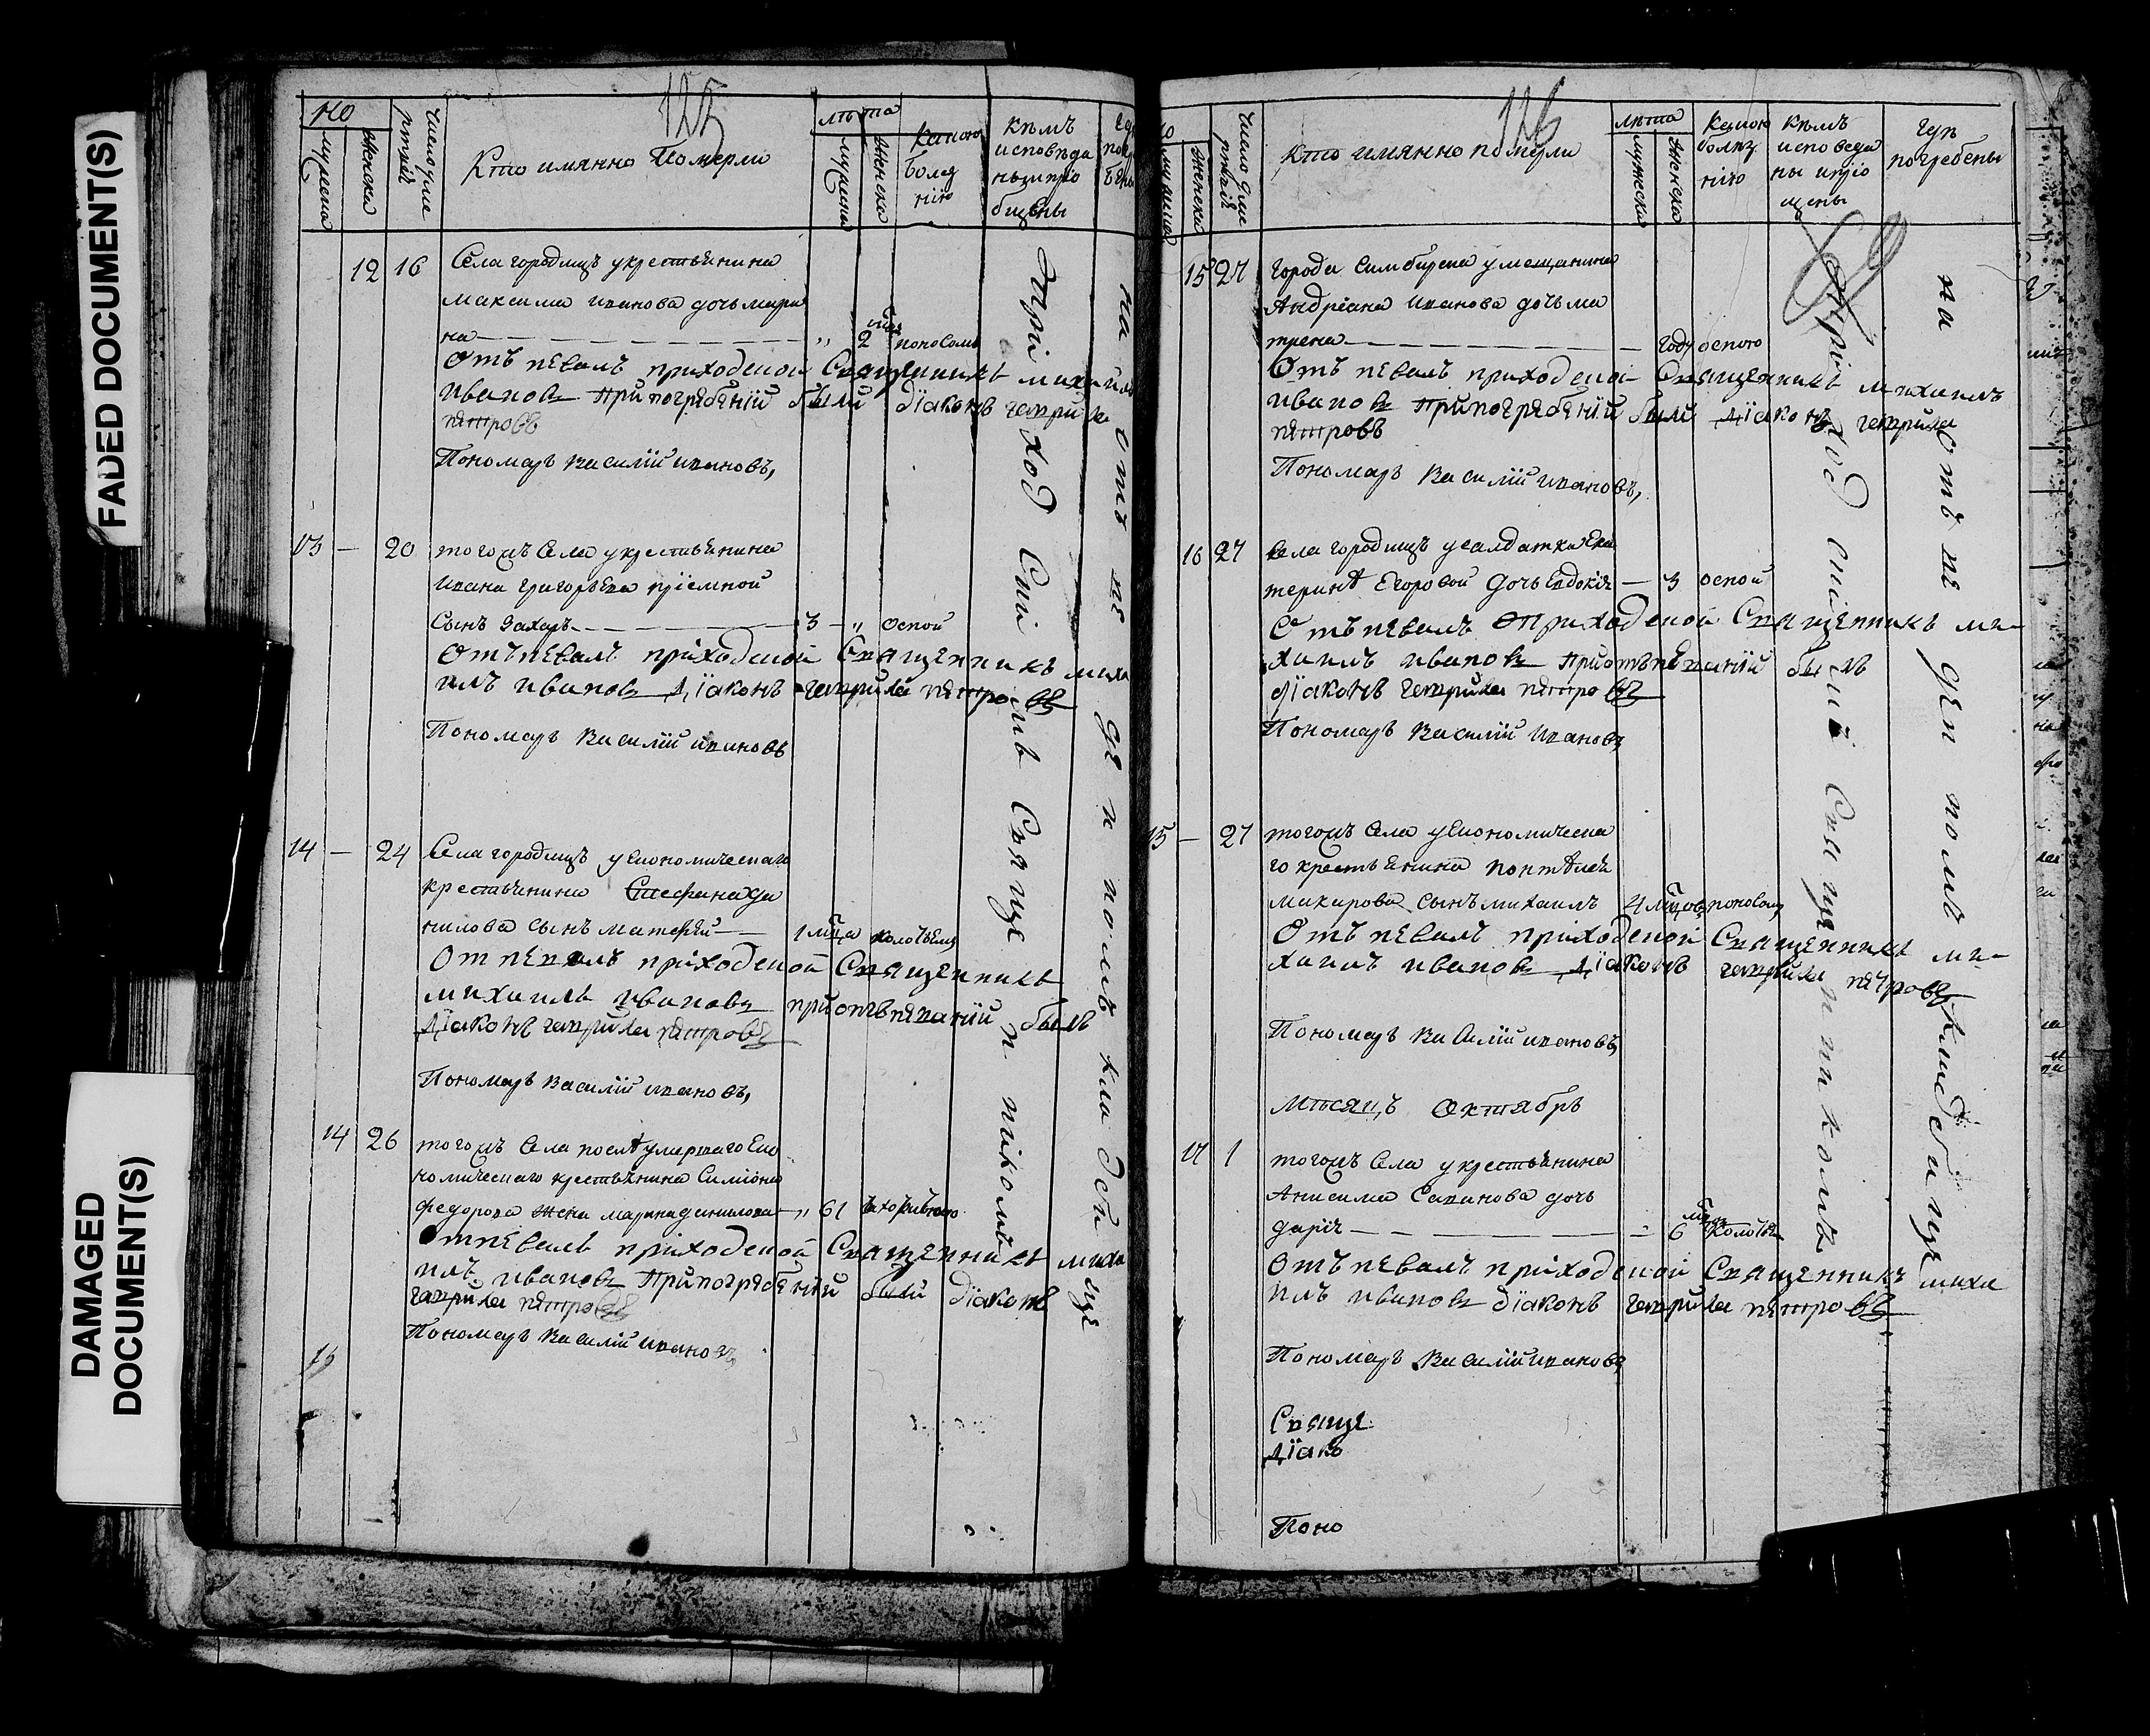 FADED DOCUMENT(S)
DAMAGED
DOCUMENT(S)
125
No
мужеска
женска
число дне
Кто имянно Померли
лѣта
мужеска
женска
какою
болез
нію
Кѣмъ
исповѣда
ны и пріо
бщены
12 16 Села городищъ у крестьянина
максима иванова дочь мари
на 2 поносомъ
Отъ певалъ приходской Священникъ михаилъ
Ивановъ При погрябѣніи были діаконъ гаврила
пѣтровъ
Пономарь Василій ивановъ,
13 — 20 тогожъ Села у крестьянина
ивана григорьева пріемной
Сынъ Захаръ 3 „ оспой
Отъпевалъ приходской Священникъ миха
илъ Ивановъ Діаконъ гаврила пѣтровъ
Пономарь Василій ивановъ
14 — 24 Села городищъ у Економическаго
крестьянина Стефана да
нилова Сынъ матфѣй 1 мца колотьемъ
Отпевалъ приходской Священникъ
михаилъ Ивановъ при отъпѣваніи былъ
Діаконъ гаврила пѣтровъ
Пономарь Василій ивановъ,
14 26 тогожъ Села послѣ умершаго Еко
номическаго крестьянина Симіона
федорова жена марина данилова „ 61
Отпевалъ приходской Священникъ миха
илъ Ивановъ При погрябѣніи были Діаконъ
гаврила пѣтровъ
Пономарь Василій ивановъ
При ход скимъ Свяще н никомъ
на отъ ве де н номъ кла дби ще
126
мужеска
женска
число дне
кто имянно померли
лѣта
мужеска
женска
Какою
болѣз
нію
Кѣмъ
исповеда
ны и пріо
щены
гдѣ
погребены
15 27 города Симбирска у мещанина
Андріана иванова дочь ма
трена году оспою
Отъ певалъ приходской Священникъ михаилъ
Ивановъ При погрябѣніи были Діаконъ гаврила
пѣтровъ
Пономарь Василій ивановъ,
16 27 Села городищъ у салдатки Ека
терины Егоровой дочь Евдокія — 3 оспой
Отъпевалъ Приходской Священникъ ми-
хаилъ Ивановъ при отъпѣваніи былъ
діаконъ гаврила пѣтровъ
Пономарь Василій Ивановъ
15 — 27 тогожъ Села у Економическа
го крестьянина понтѣлея
макарова Сынъ михаилъ 4 мцовъ поносомъ
Отъ певалъ приходской Священникъ ми-
хаилъ Ивановъ Діаконъ гаврила пѣтровъ
Пономарь Василій ивановъ
Мѣсяцъ Октябрь
17 1 тогожъ Села у крестьянина
Анисима Саванова дочь
дарія 6 колотье
Отъ певалъ приходской Священникъ миха
илъ Ивановъ діаконъ гаврила пѣтровъ
Пономарь Василій ивановъ
Свяще
Діако
Поно
При ход скимъ Свя ще н ни комъ
на отъ ве ден номъ кладби ще